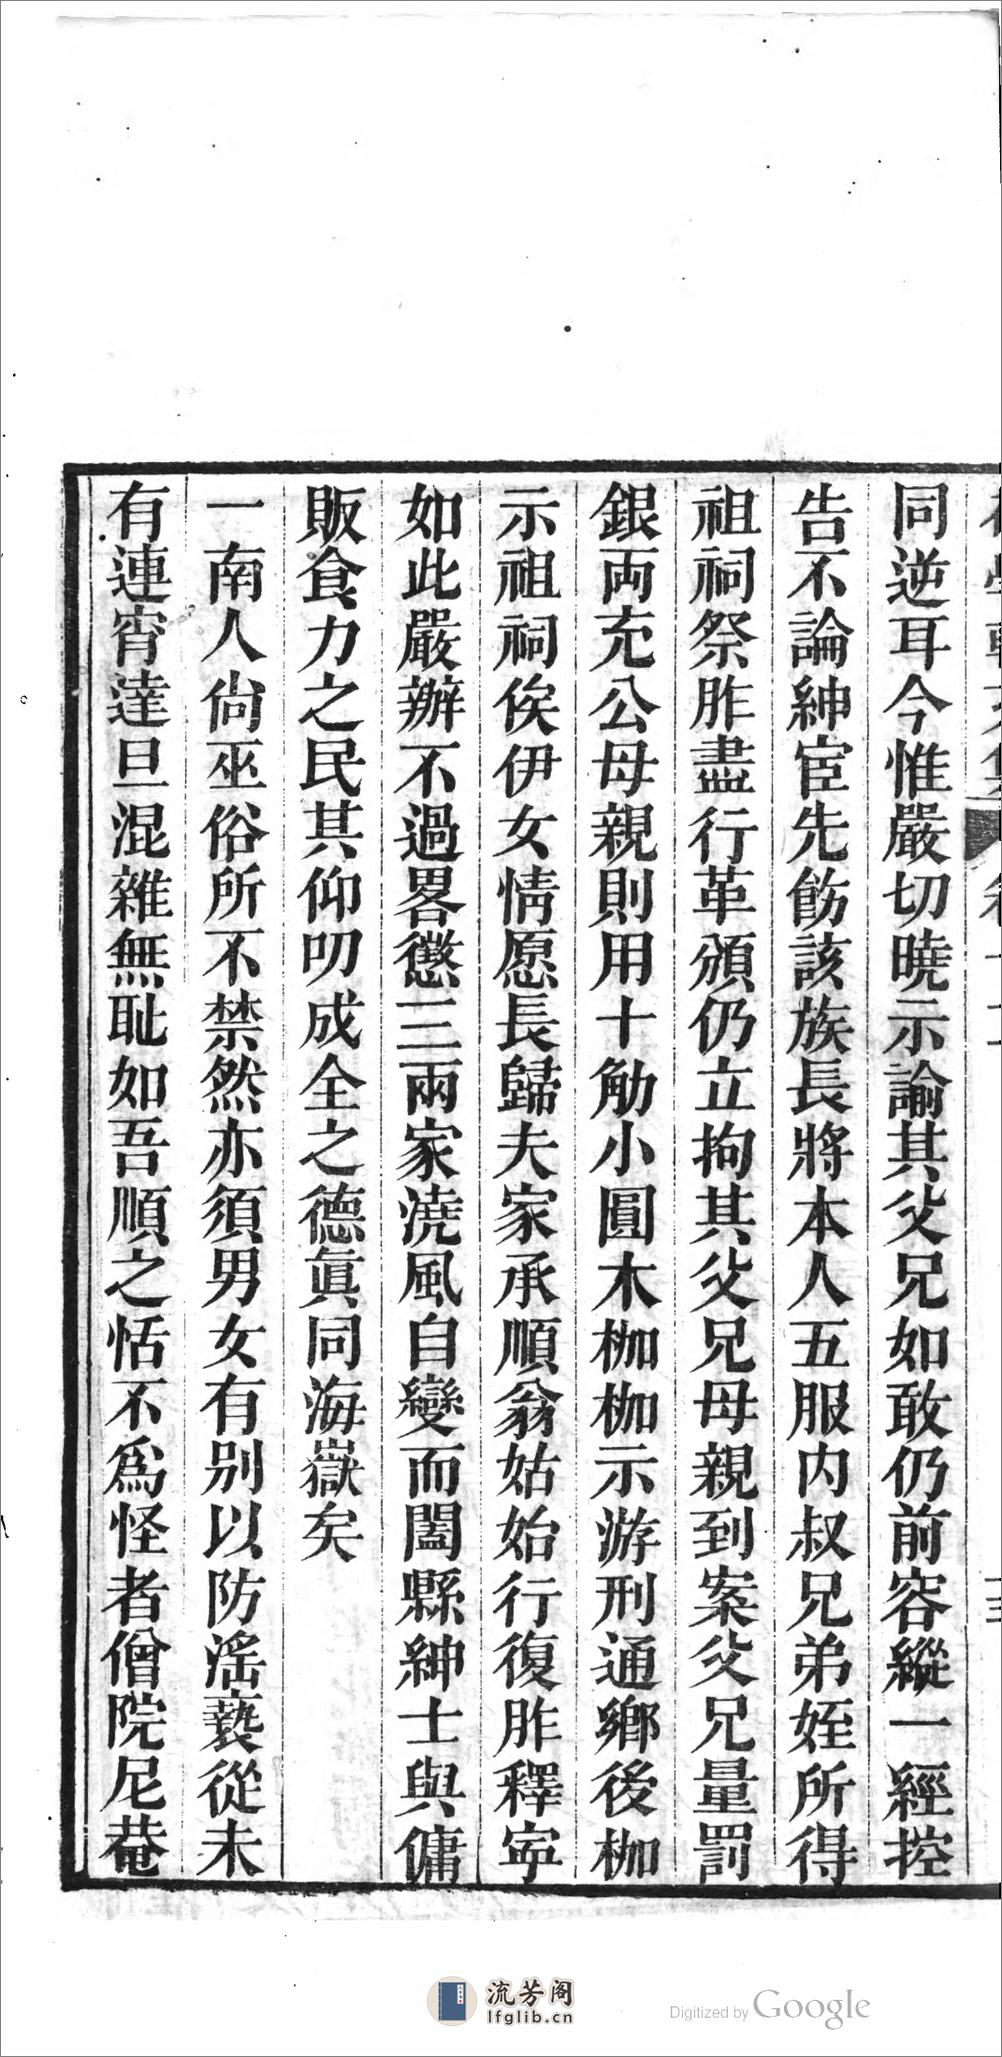 同逆耳今惟嚴切曉示諭其父兄如敢仍前容縱一經控
告不論紳宦先飭該族長將本人五服内叔兄弟姪所得
祖祠祭胙盡行革頒仍立拘其父兄母親到案父兄量罰
銀両充公母親則用十觔小圓木枷枷示游刑通鄉後枷
示祖祠俟伊女情愿長歸夫家承順翁姑始行復胙釋寜
如此嚴辦不過畧懲三兩家澆風自變而闔縣紳士與傭
販食力之民其仰叨成全之德眞同海嶽矣
一南人尙巫俗所不禁然亦須男女有别以防滛褻從未
有連宵達旦混雜無恥如吾順之恬不爲怪者僧院尼菴
流芳阁
lfglib.cn
Digitized by Google